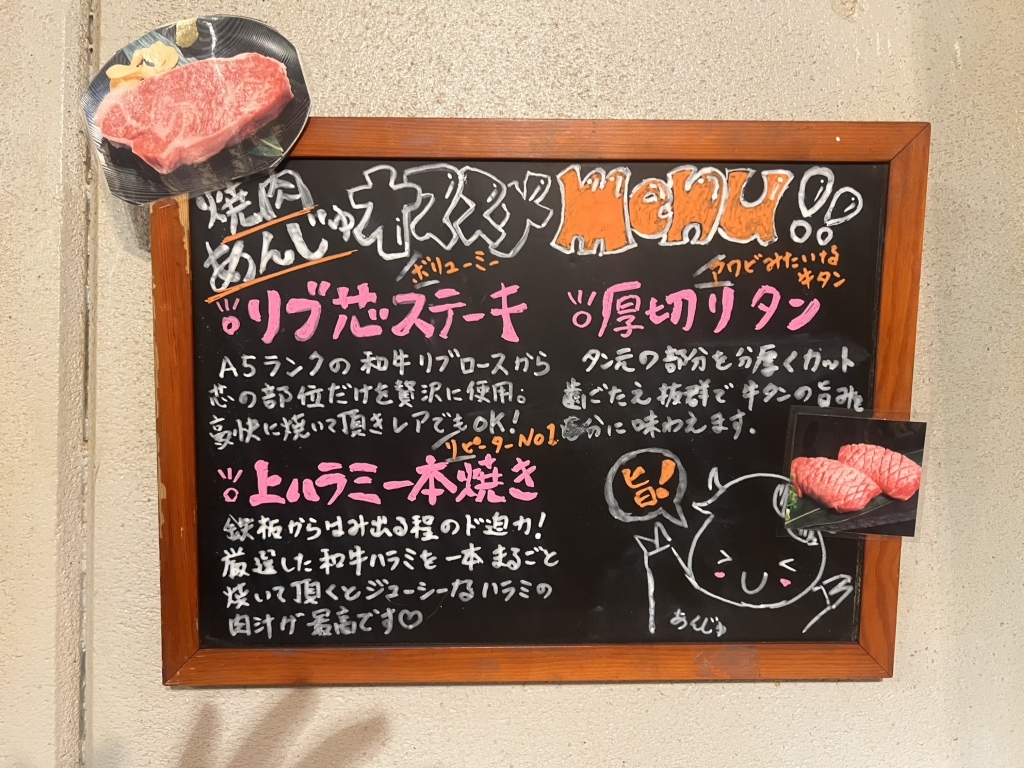 焼肉
あんじゅ
オススメ MENU!!
ボリューミー
リブ芯ステーキ
A5ランクの和牛リブロースから
芯の部位だけを贅沢に使用。
豪快に焼いて頂きレアでもOK!
アワビみたいな
牛タン
厚切りタン
タン元の部分を分厚くカット
歯ごたえ抜群で牛タンの旨みを
分に味わえます.
リピーターNo1
上ハラミ一本焼き
鉄板からはみ出る程のド迫力!
厳選した和牛ハラミを一本まるごと
焼いて頂くとジューシーなハラミの
肉汁が最高です♡
旨!
あんじゅ